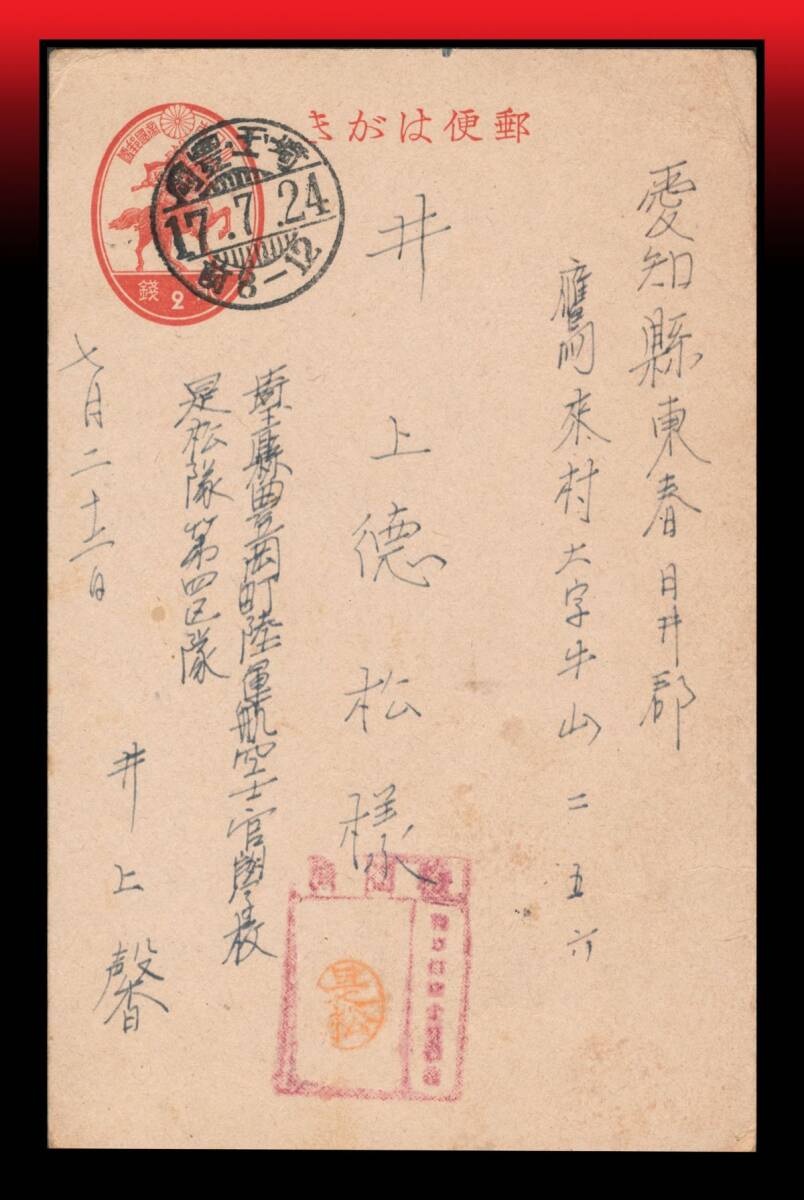 郵便はがき
愛知縣東春日井郡
鷹来村大字牛山二五六
井上徳松様
埼玉縣豊岡町陸軍航空士官學校
是松隊第四区隊
井上馨
七月二十三日
錢 2
埼玉・豊岡
17.7.24
前8-12
是松